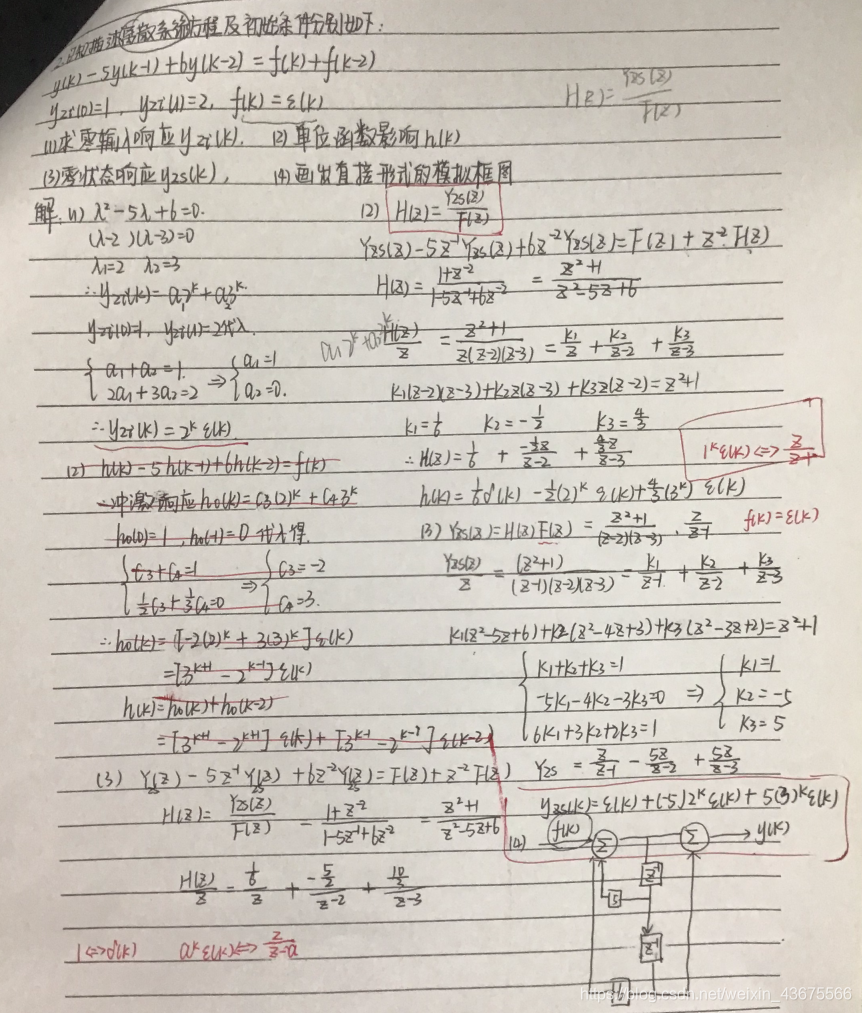 描述离散系统方程及初始条件分别如下:
y(k)-5y(k-1)+6y(k-2)=f(k)+f(k-2)
yzi(0)=1, yzi(1)=2, f(k)=ε(k)
H(z)=Yzs(z)/F(z)
(1)求零输入响应yzi(k). (2)单位函数影响h(k)
(3)零状态响应yzs(k), (4)画出直接形式的模拟框图
解. (1) λ²-5λ+6=0.
(λ-2)(λ-3)=0
λ1=2 λ2=3
∴yzi(k)=a₁2^k+a₂3^k
yzi(0)=1, yzi(1)=2代入
{a1+a2=1. 2a1+3a2=2 ⇒ {a1=1 a2=0.
∴yzi(k)=2^k ε(k)
(2) h(k)-5h(k-1)+6h(k-2)=f(k)
冲激响应h0(k)=C3(2)^k+C4 3^k
h0(0)=1, h0(-1)=0 代入得.
{C3+C4=1 1/2C3+1/3C4=0 ⇒ {C3=-2 C4=3.
∴h0(k)=[-2(2)^k+3(3)^k]ε(k)
=[3^{k+1}-2^{k+1}]ε(k)
h(k)=h0(k)+h0(k-2)
=[3^{k+1}-2^{k+1}]ε(k)+[3^{k-1}-2^{k-1}]ε(k-2)
(3) Yzs(z)-5z⁻¹Yzs(z)+6z⁻²Yzs(z)=F(z)+z⁻²F(z)
H(z)=Yzs(z)/F(z)=(1+z⁻²)/(1-5z⁻¹+6z⁻²)=(z²+1)/(z²-5z+6)
H(z)/z=(1/6)/z+(-5/2)/(z-2)+(10/3)/(z-3)
1⇔δ(k) a^kε(k)⇔z/(z-a)
(2) H(z)=Yzs(z)/F(z)
Yzs(z)-5z⁻¹Yzs(z)+6z⁻²Yzs(z)=F(z)+z⁻²F(z)
H(z)=(1+z⁻²)/(1-5z⁻¹+6z⁻²)=(z²+1)/(z²-5z+6)
H(z)/z=(z²+1)/(z(z-2)(z-3))=k1/z+k2/(z-2)+k3/(z-3)
k1(z-2)(z-3)+k2z(z-3)+k3z(z-2)=z²+1
k1=1/6 k2=-1/2 k3=4/3
∴H(z)=1/6+(-1/2z)/(z-2)+(4/3z)/(z-3)
1^kε(k)⇔z/(z-1)
h(k)=1/6δ(k)-1/2(2)^kε(k)+4/3(3^k)ε(k)
(3) Yzs(z)=H(z)F(z)=(z²+1)/((z-2)(z-3))·z/(z-1) f(k)=ε(k)
Yzs(z)/z=(z²+1)/((z-1)(z-2)(z-3))=k1/(z-1)+k2/(z-2)+k3/(z-3)
k1(z²-5z+6)+k2(z²-4z+3)+k3(z²-3z+2)=z²+1
{k1+k2+k3=1 -5k1-4k2-3k3=0 6k1+3k2+2k3=1 ⇒ {k1=1 k2=-5 k3=5
Yzs=z/(z-1)-5z/(z-2)+5z/(z-3)
yzs(k)=ε(k)+(-5)2^kε(k)+5(3)^kε(k)
(4) f(k) Σ Σ y(k)
z⁻¹
5
z⁻¹
https://blog.csdn.net/weixin_43675566